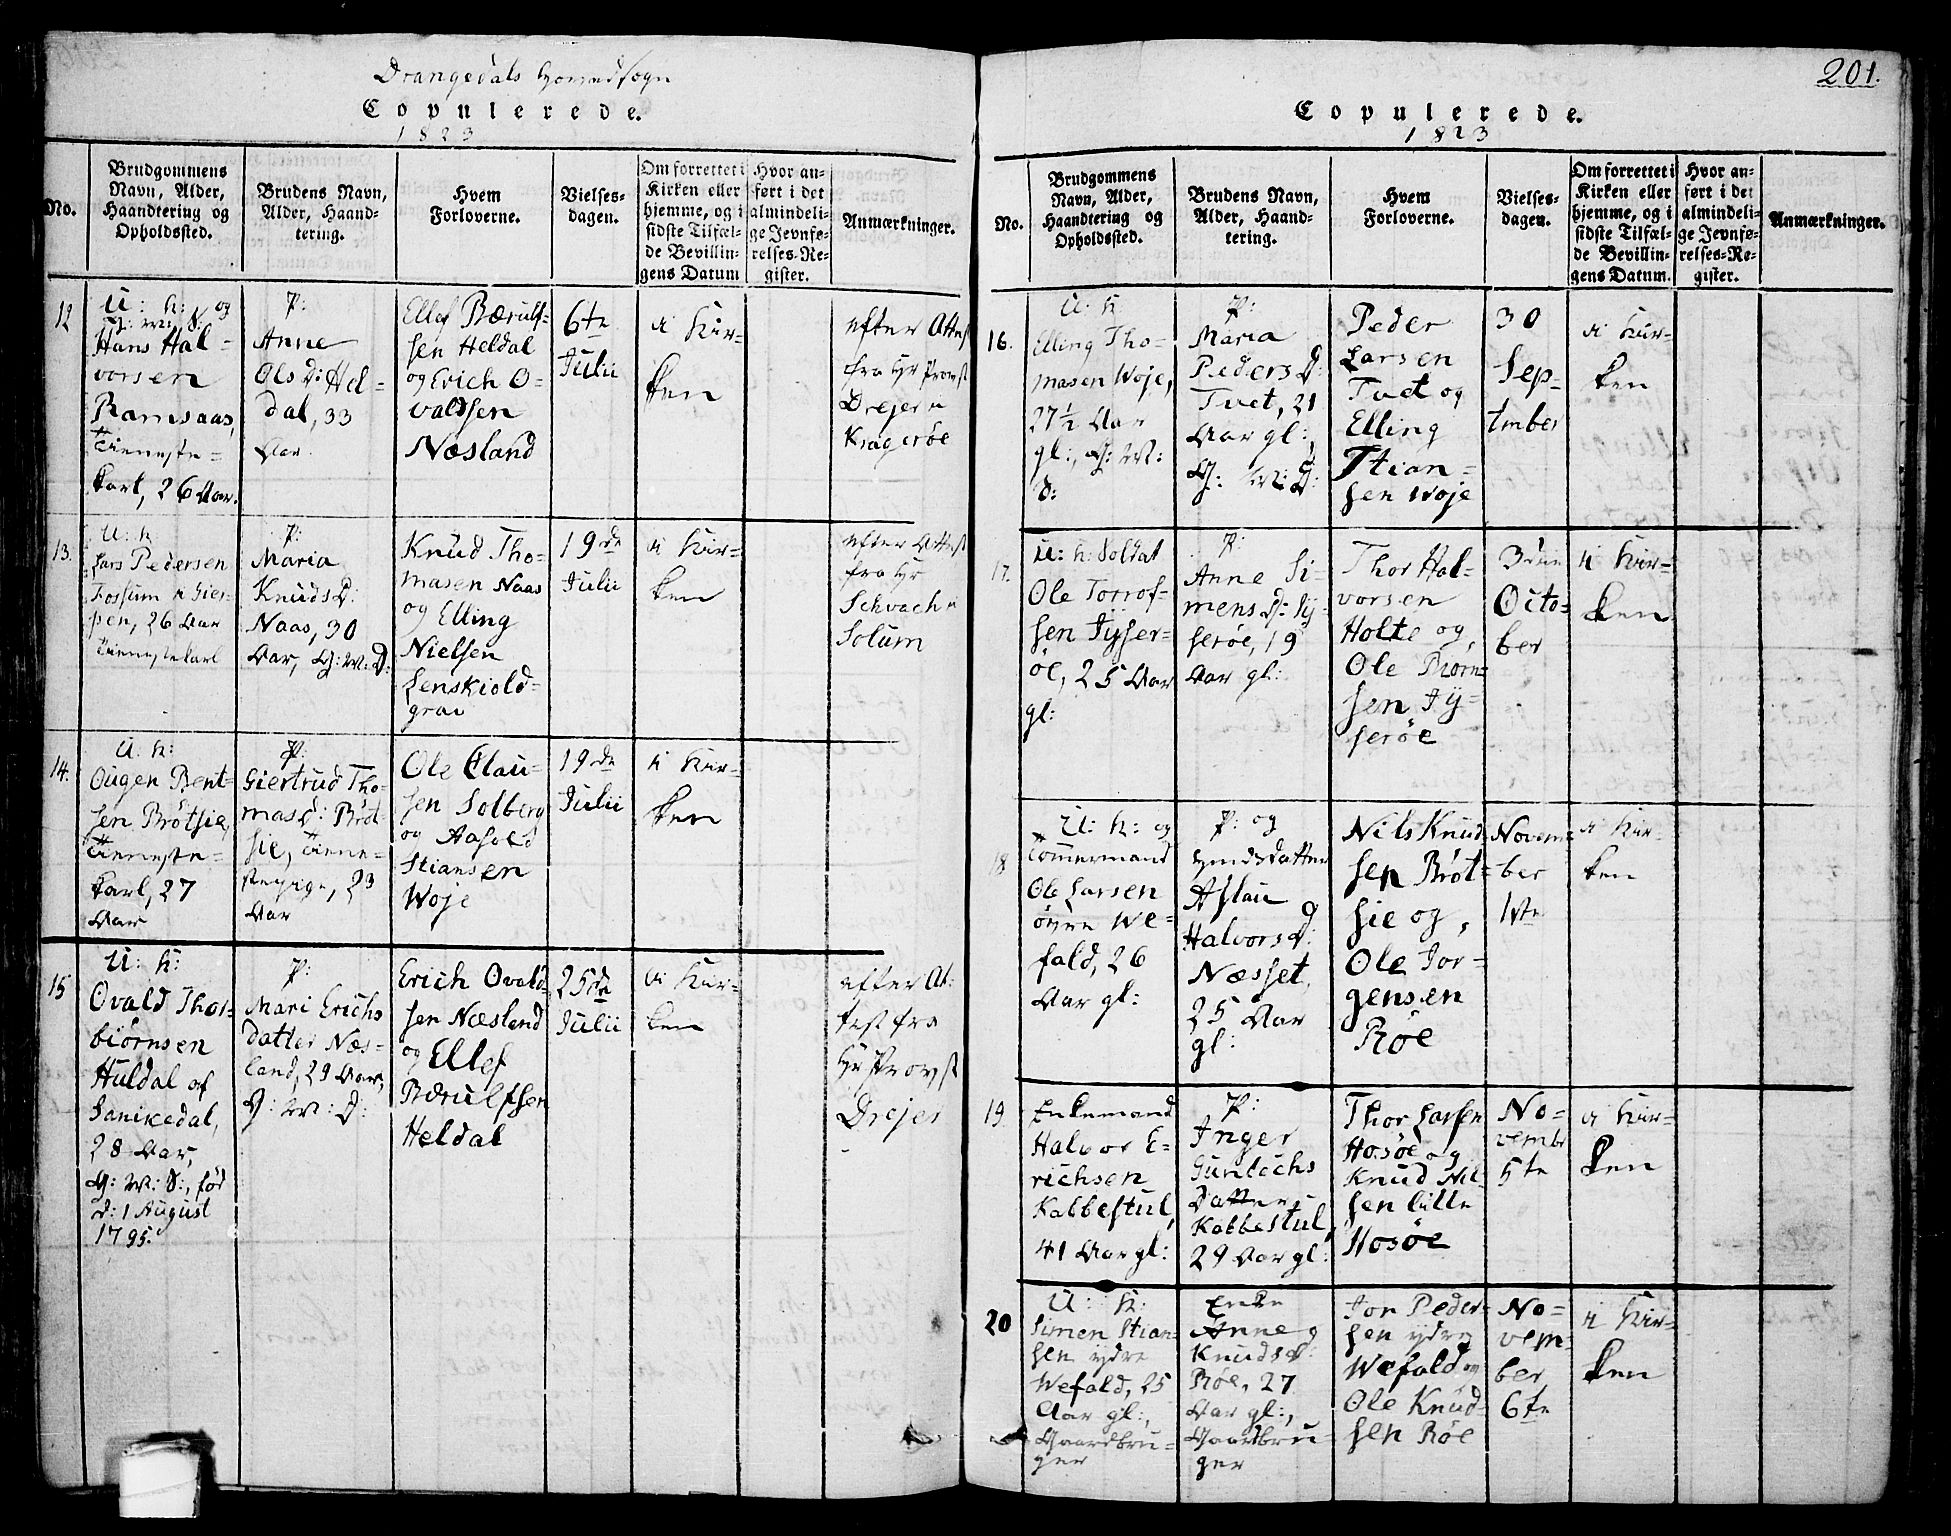 Drangedals Hovedsogn
Copulerede.
1823
No.
Brudgommens
Navn, Alder,
Haandtering og
Opholdssted.
Brudens Navn,
Alder, Haand-
tering.
Hvem
Forloverne.
Vielses-
dagen.
Om forrettet i
Kirken eller
hjemme, og i
sidste Tilfæl-
de Bevillin-
gens Datum
Hvor an-
ført i det
almindeli-
ge Jevnfø-
relses-Re-
gister.
Anmærkninger.
12
U: K: og
G: M: S:
Hans Hal-
vorsen
Ramsaas,
Tieneste-
karl, 26 Aar.
P:
Anne
Ols D: Hel-
dal, 33
Aar.
Ellef Bærulf-
sen Heldal
og Erich O-
valdsen
Næsland
6te
Julii
i Kir-
ken
efter Attest
fra Hr Provst
Drejer i
Kragerøe
13.
U: K
Lars Pedersen
Fossum i Gier-
pen, 26 Aar
Tienestekarl
P:
Maria
Knuds D:
Naas, 30
Aar, G: M: D:
Knud Tho-
masen Naas
og Elling
Nielsen
Henskiold-
grav
19de
Julii
i Kir-
ken
efter Attest
fra Hr
Schvach i
Solum
14.
U: K:
Ougen Bent-
sen Brøtsie,
Tieneste-
karl, 27
Aar
P:
Giertrud Tho-
mas D: Brøt-
sie, Tiene-
stepige, 29
Aar
Ole Clau-
sen Solberg
og Aasold
Stiansen
Woje
19de
Julii
i Kir-
ken
15
U: K:
Ovald Thor-
biørnsen
Huldal af
Sanikedal,
28 Aar,
G: M: S:, fød
d: 1 August
1795.
P:
Mari Erichs
datter Næs-
land, 29 Aar,
G: M: D:
Erich Ovald-
sen Næsland
og Ellef
Bærulfsen
Heldal
25de
Julii
i Kir-
ken
efter At-
test fra
Hr Provst
Drejer
201.
Copulerede.
1823
No.
Brudgommens
Navn, Alder,
Haandtering og
Opholdssted.
Brudens Navn,
Alder, Haand-
tering.
Hvem
Forloverne.
Vielses-
dagen.
Om forrettet i
Kirken eller
hjemme, og i
sidste Tilfæl-
de Bevillin-
gens Datum.
Hvor an-
ført i det
almindeli-
ge Jevnfø-
relses-Re-
gister.
Anmærkninger.
16.
U: K
Elling Tho-
masen Woje,
27½ Aar
gl:, G: M:
S:
P:
Maria
Peders D:
Tvet, 21
Aar gl:,
G: M: D:
Peder
Larsen
Tvet og
Elling
Stian-
sen Woje
30
Sep-
tember
i Kir-
ken
17.
U: K: Soldat
Ole Torrof-
sen Jyser-
øe, 25 Aar
gl:
P:
Anne Si-
mens D: Jy-
serøe, 19
Aar gl:
Thor Hal-
vorsen
Holte og,
Ole Biørn-
sen Jy-
serøe
3die
Octo-
ber
i Kir-
ken
18
U: K: og
Tømmermand
Ole Larsen
øvre We-
fald, 26
Aar gl:
P: og
Huusdatter
Aslau
Halvors D:
Næsset,
25 Aar
gl:
Nils Knud-
sen Brøt-
sie og,
Ole Jor-
gensen
Røe
Novem-
ber
1ste
i Kir-
ken
19.
Enkemand
Halvor E-
richsen
Kabbestul,
41 Aar gl:
P:
Inger
Gunlechs
Datter
Kabbestul,
29 Aar gl:
Thor Larsen
Hosøe og
Knud Nil-
sen lille
Hosøe
No-
vembr
5te
i Kir-
ken
20
U: K:
Simen Stian-
sen ydre
Wefald, 25
Aar gl:,
Gaardbru-
ger
Enke
Anne
Knuds D:
Røe, 27
Aar gl:,
Gaardbru-
ger
Jon Peder-
sen ydre
Wefald og
Ole Knud-
sen Røe
No-
vem-
ber
6te
i Kir-
ken